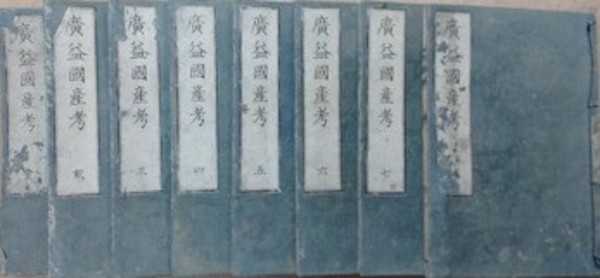 廣益國産考
廣益國産考 貮
廣益國産考 三
廣益國産考 四
廣益國産考 五
廣益國産考 六
廣益國産考 七
廣益國産考